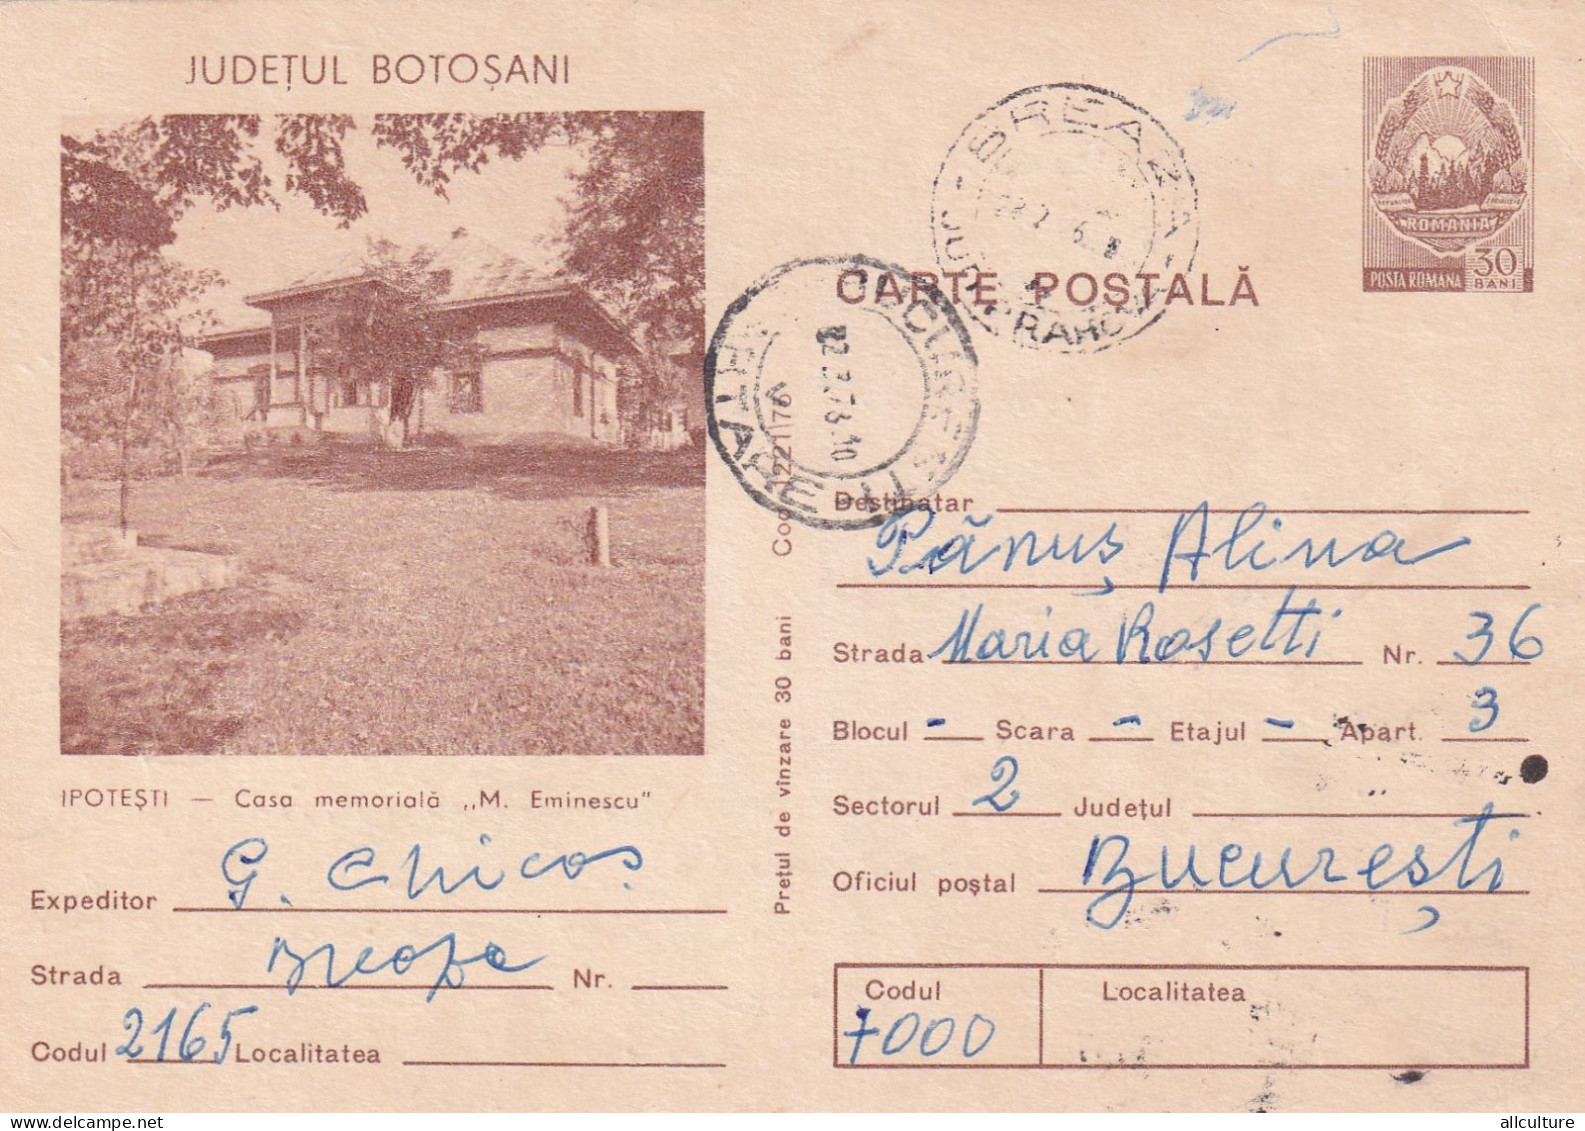 JUDEȚUL BOTOȘANI
IPOTEȘTI — Casa memorială ,,M. Eminescu"
Expeditor G. Chicoș
Strada Breaza Nr.
Codul 2165 Localitatea
Prețul de vînzare 30 bani
BREAZA
JUD. PRAHOVA
BUCUREȘTI
CARTE POȘTALĂ
REPUBLICA SOCIALISTA
ROMANIA
POSTA ROMANA 30 BANI
Destinatar
Pănuș Alina
Strada Maria Rosetti Nr. 36
Blocul - Scara - Etajul - Apart. 3
Sectorul 2 Județul
Oficiul poștal București
Codul Localitatea
7000
allculture